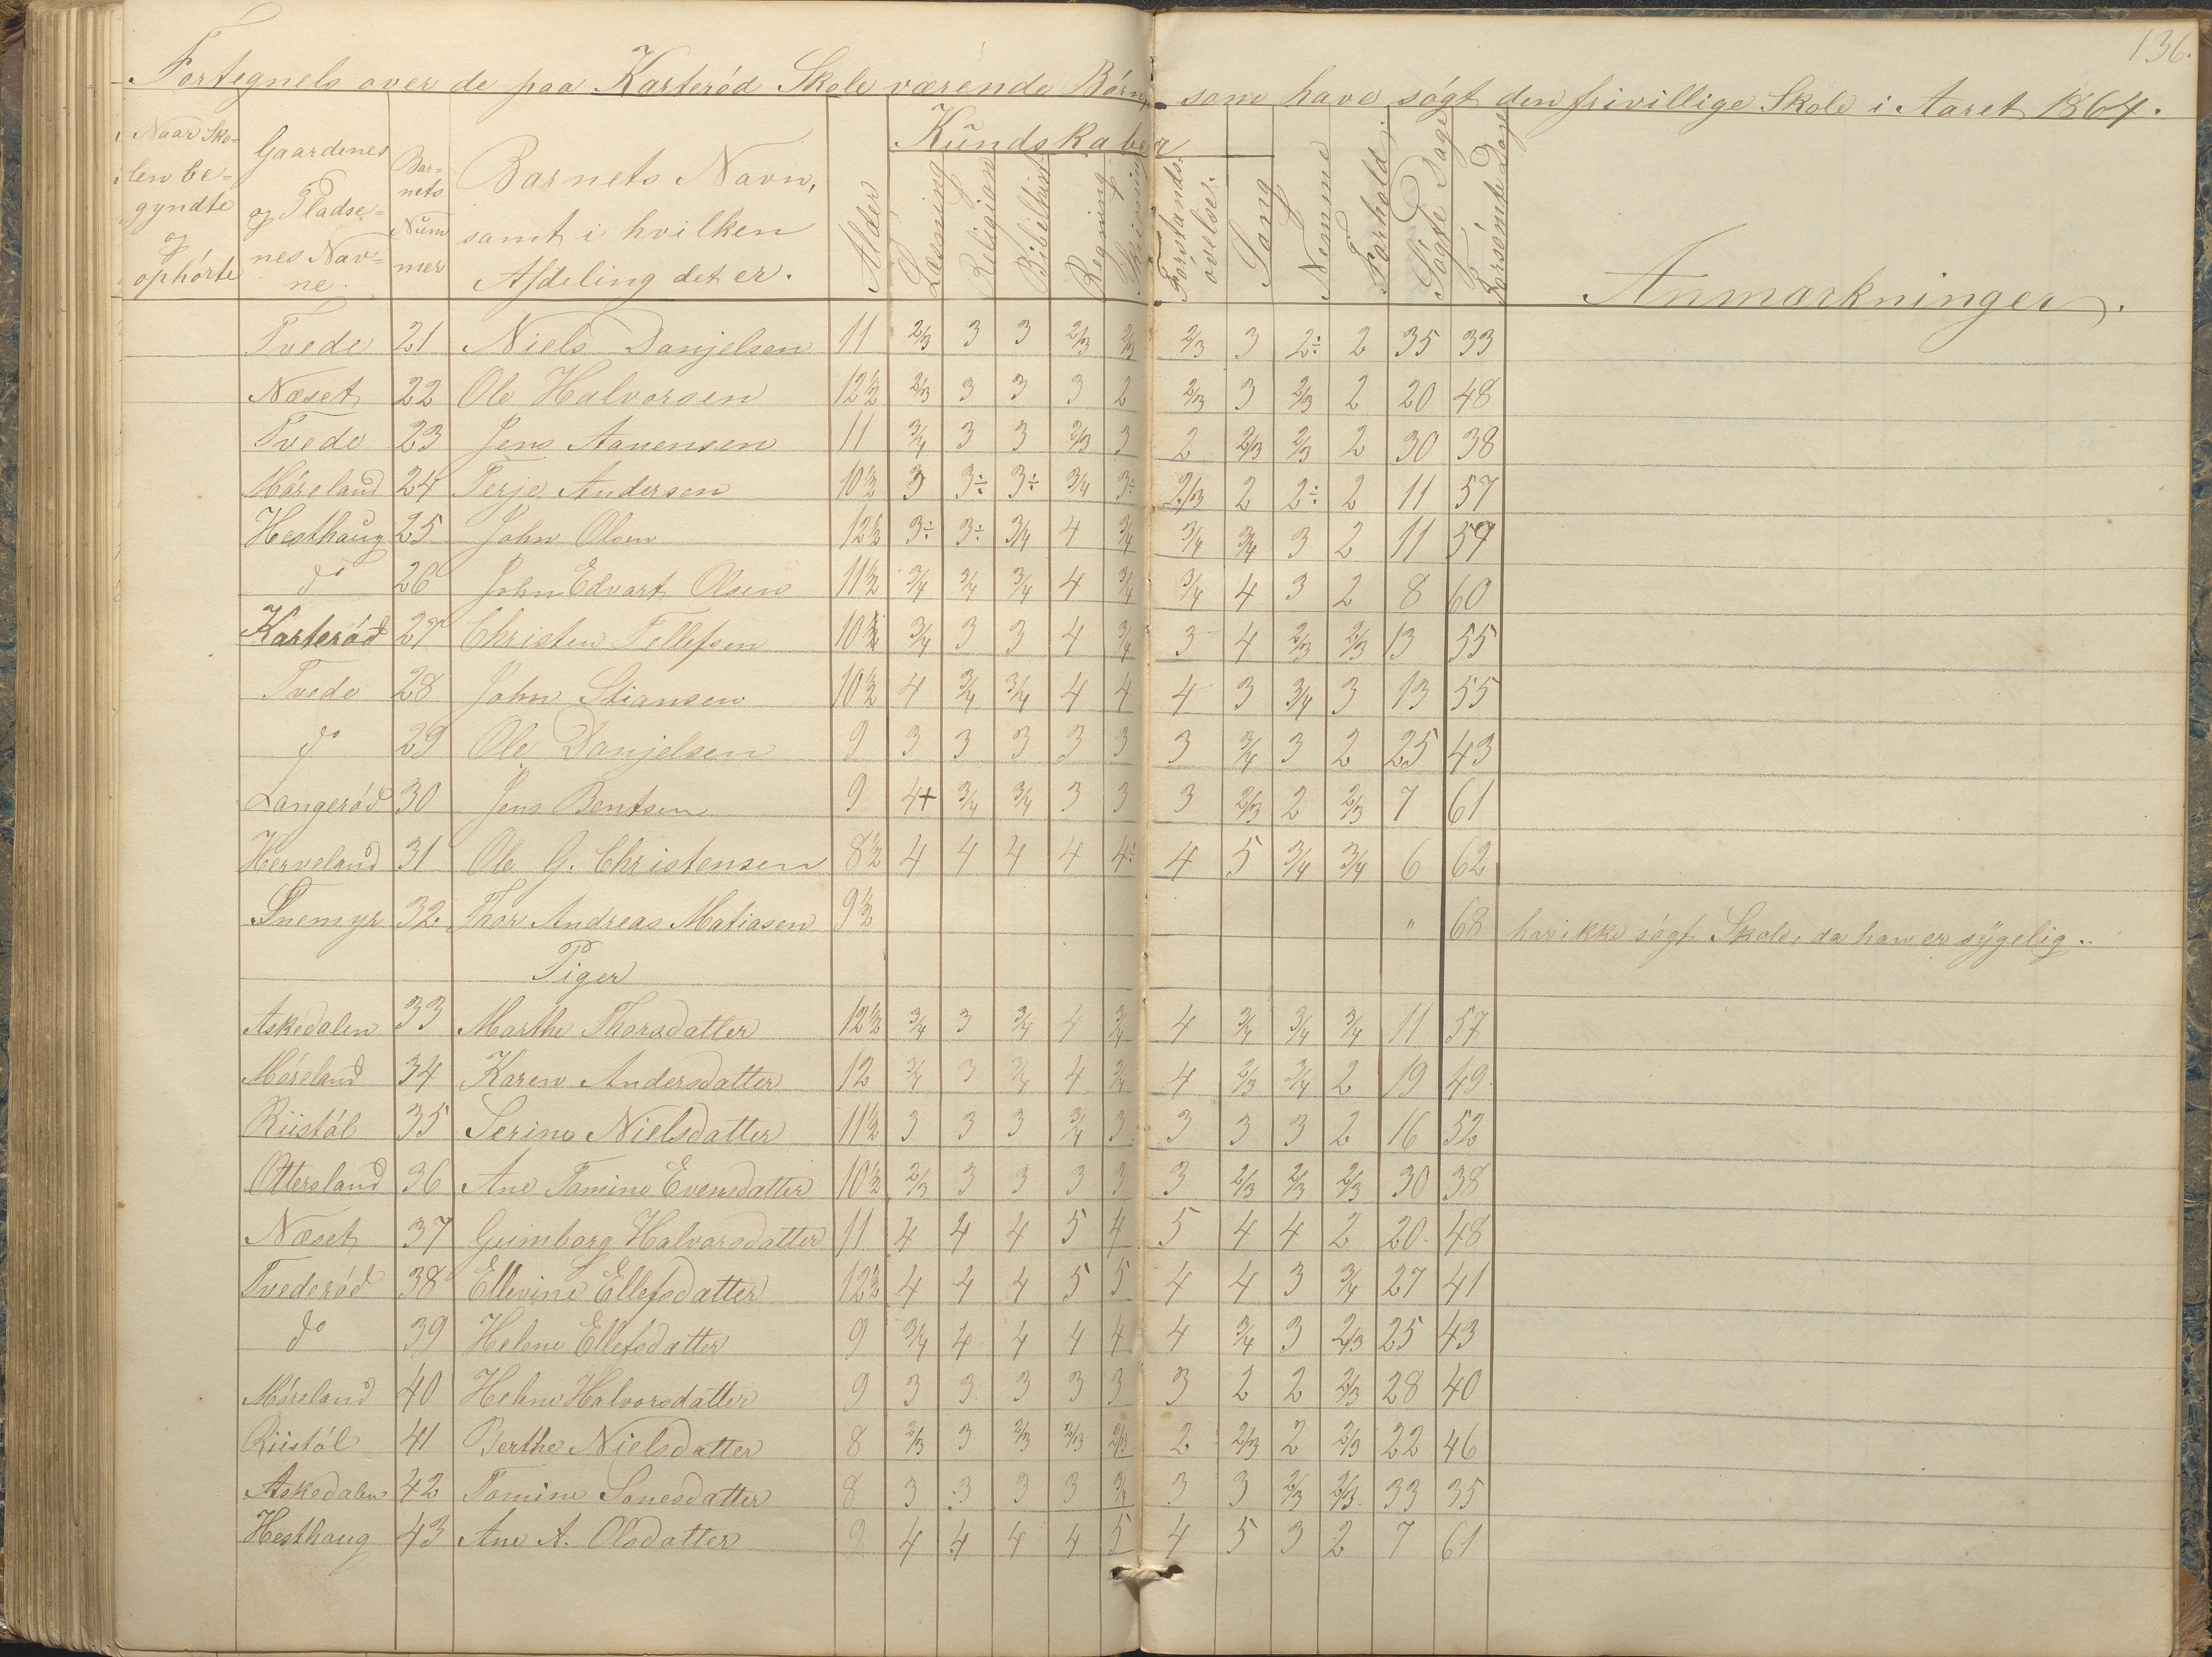 136.
Fortegnels over de paa Karterød Skole værende Børn, som have søgt den frivillige Skole i Aaret 1864.
Naar Sko=
len be=
gyndte
og
ophørte
Gaardenes
og Pladse=
nes Nav=
ne.
Bar=
nets
Num
mer
Barnets Navn,
samt i hvilken
Afdeling det er.
Alder
Kundskaber
Læsning
Religion
Bibelhist.
Regning
Skrivning
Forstands-
øvelse.
Sang
Nemme
Forhold.
Søgte Dage
Forsømte Dage
Anmærkninger.
Tvede 21 Niels Danjelsen 11 2/3 3 3 2/3 2/3 2/3 3 2÷ 2 35 33
Næset 22 Ole Halvorsen 12½ 2/3 3 3 3 2 2/3 3 2/3 2 20 48
Tvede 23 Jens Aanensen 11 3/4 3 3 2/3 3 2 2/3 2/3 2 30 38
Møreland 24 Terje Andersen 10½ 3 3÷ 3÷ 3/4 3÷ 2/3 2 2÷ 2 11 57
Hesthaug 25 John Olsen 12½ 3÷ 3÷ 3/4 4 3/4 3/4 3/4 3 2 11 57
do 26 John Edvart Olsen 11½ 3/4 3/4 3/4 4 3/4 3/4 4 3 2 8 60
Karterød 27 Christen Tellefsen 10½ 3/4 3 3 4 3/4 3 4 2/3 2/3 13 55
Tvede 28 John Stiansen 10½ 4 3/4 3/4 4 4 4 3 3/4 3 13 55
do 29 Ole Danjelsen 9 3 3 3 3 3 3 3/4 3 2 25 43
Langerød 30 Jens Bentsen 9 4+ 3/4 3/4 3 3 3 2/3 2 2/3 7 61
Herveland 31 Ole G. Christensen 8½ 4 4 4 4 4÷ 4 5 3/4 3/4 6 62
Tnemyr 32. Thor Andreas Matiasen 9½ " 68 har ikke søgt Skole, da han er sygelig..
Piger
Askedalen 33 Marthe Thorsdatter 12½ 3/4 3 3/4 4 3/4 4 3/4 3/4 3/4 11 57
Møreland 34 Karen Andersdatter 12 3/4 3 3/4 4 3/4 4 2/3 3/4 2 19 49.
Riistøl 35 Serine Nielsdatter 11½ 3 3 3 3/4 3 3 3 3 2 16 52
Ottersland 36 Ane Tomine Evensdatter 10½ 2/3 3 3 3 3 3 2/3 2/3 2/3 30 38
Næset 37 Gumborg Halvorsdatter 11 4 4 4 5 4 5 4 4 2 20. 48
Tvederød 38 Ellevine Ellefsdatter 12½ 4 4 4 5 5 4 4 3 3/4 27 41
do 39 Helene Ellefsdatter 9 3/4 4 4 4 4 4 3/4 3 2/3 25 43
Møreland 40 Helene Halvorsdatter 9 3 3. 3 3 3 3 2 2 2/3 28 40
Riistøl 41 Berthe Nielsdatter 8 2/3 3 2/3 2/3 2/3 2 2/3 2 2/3 22 46
Askedalen 42 Tomine Sonesdatter 8 3 3 3 3 3/4 3 3 2/3 2/3. 33 35
Hesthaug 43 Ane A. Olsdatter 9 4 4 4 4 5 4 5 3 2 7 61